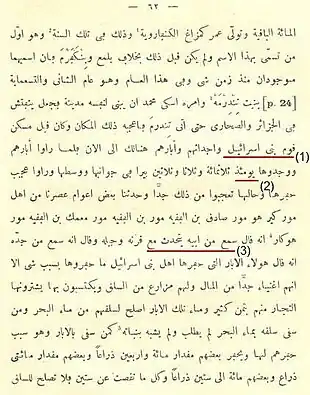 — ٦٢ —
المائة الباقية وتولّى عمر كنزاغ الكنبارويّة وذلك فى تلك السنة وهو اوّل
من تسمّى بهذا الاسم ولم يكن قبل ذلك بخلاف بلمع وبنكفرم بان اسميهما
موجودان منذ زمن شى وفى هذا العام وهو عام الثانى والتسعماية
[p. 24] بنيت تندرمه وامره اسكى محمد ان يبنى لنفسه مدينة فجعل يفتش
فى الجزائر والصحارى حتى اتى تندرم فاعجبه ذلك المكان وكان قبل مسكن
قوم بنى اسرائيل واجداثهم وآبارهم هنالك الى الان فلما راوا آبارهم (1)
ووجدوها يومئذ ثلاثمائة وثلاثا وثلاثين بيرا فى جوانها ووسطها وراوا عجيب (2)
حفرها وحالها تعجبوا من ذلك جدّا وحدثنا بعض اعوام عصرنا من اهل
مور كير هو مور صادق بن الفقيه مور بن الفقيه مور ممعك بن الفقيه مور
هوكار انه قال سمع من ابيه يتحدث مع قرنه وجيله وقال انه سمع من جدّه (3)
انه قال هولاء الابار التى حفرها اهل بنى اسرائيل ما حفروها بسبب شى الا
انهم اغنياء جدّا من المال ولهم مزارع من السلق ويكتسبون بها يشترونها
التجار منهم بثمن كثير وماء تلك الابار اصلح لسلقهم من ماء البحر ومن
سقى سلقه بماء البحر لم يطلب ولم يشبه بنباته كمن سقى بالابار وهو سبب
حفرهم لها وبحفير بعضهم مقدار مائة واربعين ذراعا وبعضهم مقدار مائتى
ذراع وبعضهم مائة الى ستين ذراعا وكل ما تنقصت عن ستين فلا تصلح للسلق